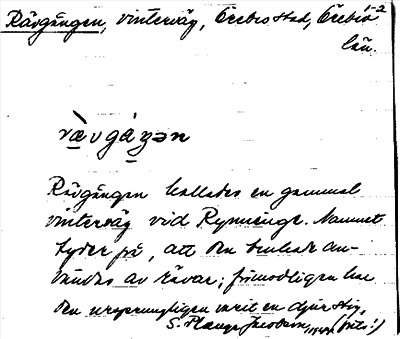 Rävgången, vinterväg, Örebro stad, Örebro 1-2
län.
rævgáŋən
Rävgången kallades en gammal
vinterväg vid Rynninge. Namnet
tyder på, att den brukade an-
vändas av rävar; förmodligen har
den ursprungligen varit en djurstig.
S. Jacobson, (brits!)